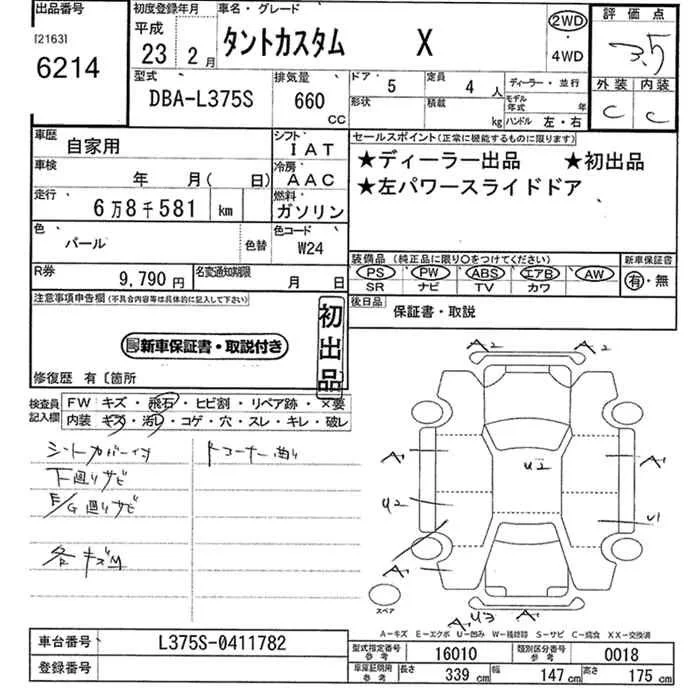 出品番号
[2163]
6214
初度登録年月
平成
23 年 2 月
車名・グレード
タントカスタム X
2WD
・
4WD
評価点
3.5
外装 内装
C C
型式
DBA-L375S
排気量
660 cc
ドア・ 5
定員 4 人
ディーラー・並行
形状
積載 kg
モデル年式 年
ハンドル 左・右
車歴
自家用
シフト
IAT
車検
年 月( 日)
冷房
AAC
走行
6万8千581 km
燃料
ガソリン
色
パール
色替
色コード
W24
R券
9,790円
名変通知期限
月 日
セールスポイント(正常に機能するものに限ります)
★ディーラー出品 ★初出品
★左パワースライドドア
装備品(純正品に限り○をつけてください)
PS PW ABS エアB AW
SR ナビ TV カワ
新車保証書
有・無
後日品
保証書・取説
注意事項申告欄(不具合内容等は具体的に記入して下さい)
新車保証書・取説付き
初出品
修復歴 有〔箇所
検査員記入欄
FW キズ・飛石・ヒビ割・リペア跡・×要
内装 キズ・汚レ・コゲ・穴・スレ・キレ・破レ
シートカバー付
下廻りサビ
E/G廻りサビ
各キズM
A2 A2
A1 U2 A1
U2 U1
A1
A1 U3 A2
スペア
A-キズ E-エクボ U-凹み W-補修跡 S-サビ C-腐食 XX-交換済
車台番号
L375S-0411782
登録番号
型式指定番号
参考
16010
類別区分番号
参考
0018
車庫証明用
参考
長さ 339 cm 幅 147 cm 高さ 175 cm